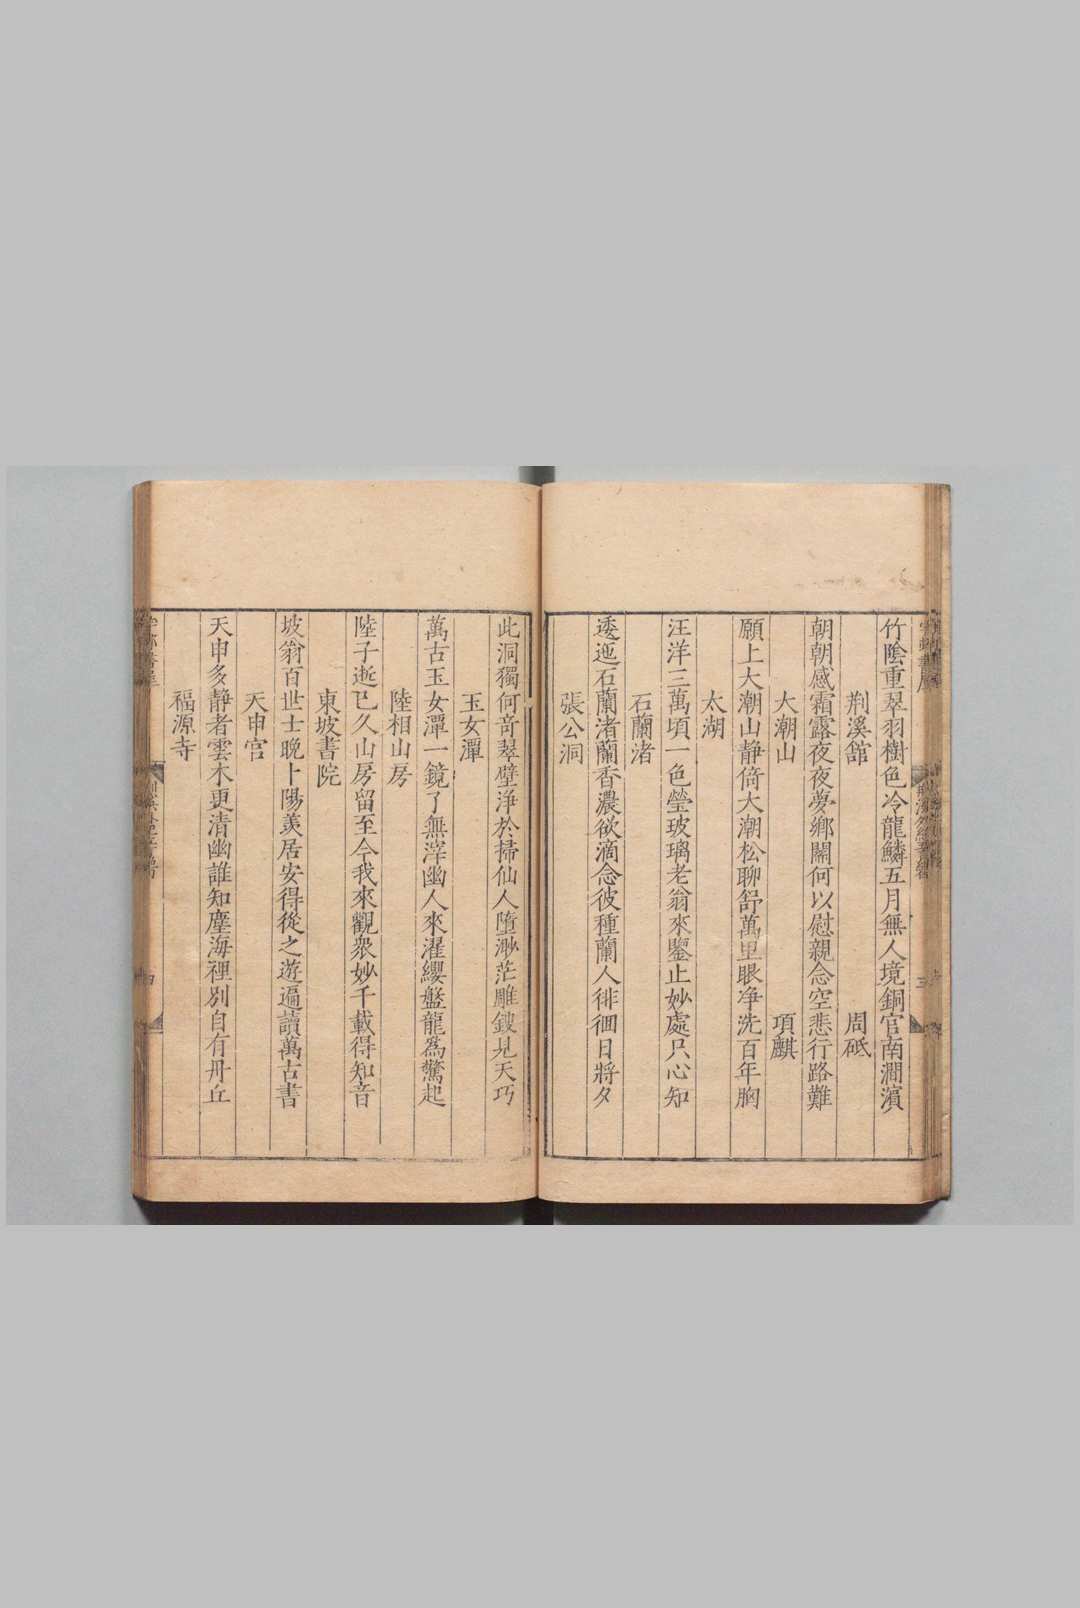 竹陰重翠羽樹色冷龍鱗五月無人境銅官南澗濱
荆溪館 周砥
朝朝感霜露夜夜夢鄉關何以慰親念空悲行路難
大潮山 項麒
願上大潮山靜倚大潮松聊舒萬里眼净洗百年胸
太湖
汪洋三萬頃一色瑩玻璃老翁來鑒止妙處只心知
石蘭渚
逶迤石蘭渚蘭香濃欲滴念彼種蘭人徘徊日將夕
張公洞
此洞獨何奇翠壁淨於掃仙人墮渺茫雕鎪見天巧
玉女潭
萬古玉女潭一鏡了無滓幽人來濯纓盤龍為驚起
陸相山房
陸子逝已久山房留至今我來觀衆妙千載得知音
東坡書院
坡翁百世士晚卜陽羨居安得從之遊遍讀萬古書
天申宫
天申多靜者雲木更清幽誰知塵海裡別自有丹丘
福源寺